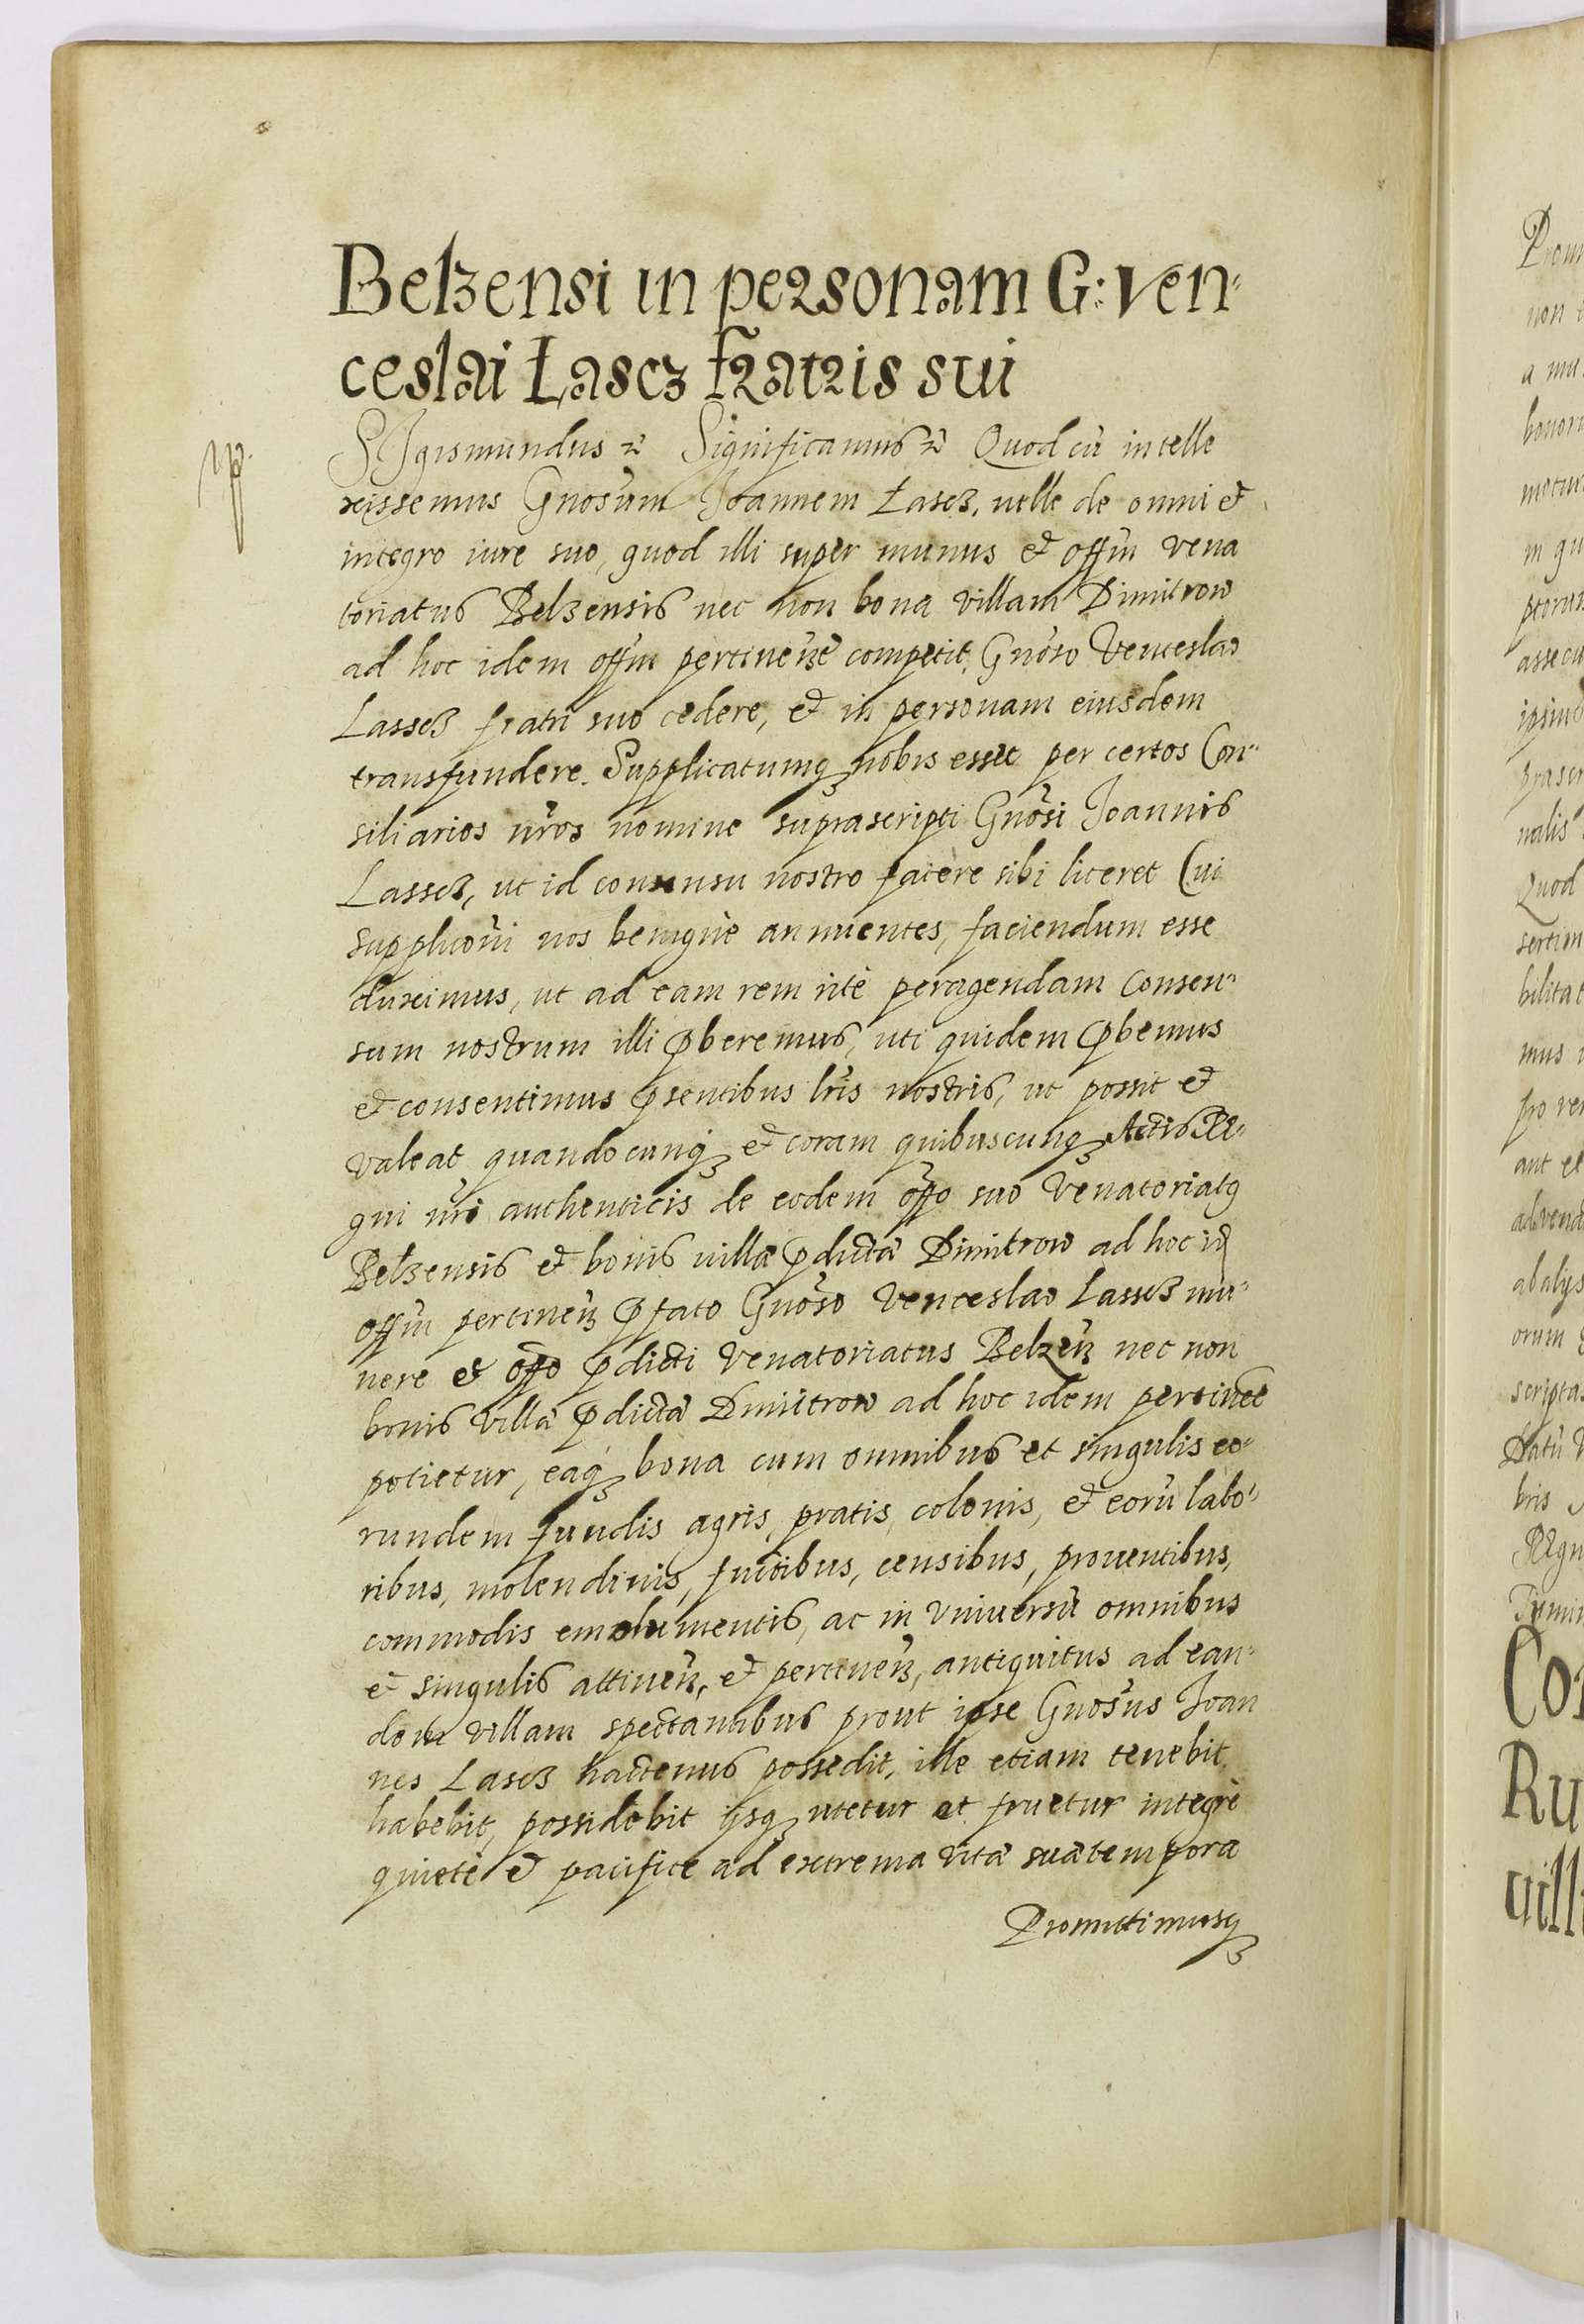 Belzensi in personam G: Ven-
ceslai Łascz fratris sui
SIgismundus &c Significamus &c Quod cū intelle
xissemus Gnosum Joannem Łascz, velle de omni et
integro iure suo, quod illi super munus et offiu vena
toriatus Belzensis nec non bona villam Dimitrow
ad hoc idem offiu pertineñ competit, Gnoso Venceslao
Lasscz fratri suo cedere, et in personam eiusdem
transfundere. Supplicatumq nobis esset per certos Con-
siliarios nros nomine suprascripti Gnosi Joannis
Lasscz, ut id consensu nostro facere sibi liceret Cui
supplicõni nos benigne annuentes, faciendum esse
duximus, ut ad eam rem rite peragendam Consen-
sum nostrum illi pberemus, uti quidem pbemus
et consentimus psentibus lris nostris, ut possit et
valeat quandocunq et coram quibuscunq Actis Re-
gni nri authenticis de eodem offo suo Venatoriatq
Belzensis et bonis villæ pdictæ Dimitrow ad hoc id
offiu pertineñ pfato Gnoso Venceslao Lasscz mu-
nere et offo pdicti Venatoriatus Belzeñ nec non
bonis villa pdicta Dmitrow ad hoc idem pertinēt
potietur, eaq bona cum omnibus et singulis eo-
rundem fundis agris, pratis, colonis, et eorū labo-
ribus, molendinis, fructibus, censibus, proventibus,
commodis emolumentis, ac in vniversū omnibus
et singulis attineñ, et pertineñ, antiquitus ad ean-
dem villam spectantibus prout ipse Gnosus Joan
nes Lascz hactenus possedit, ille etiam tenebit,
habebit, possidebit ijsq utetur et fruetur integrè
quietè et pacifice ad extrema vitæ suæ tempora
Promittimusq